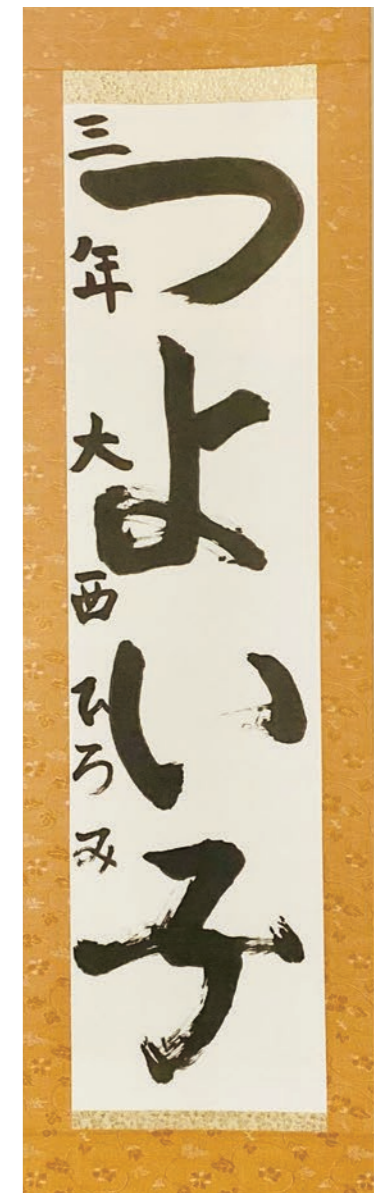 つよい子
三年 大西ひろみ